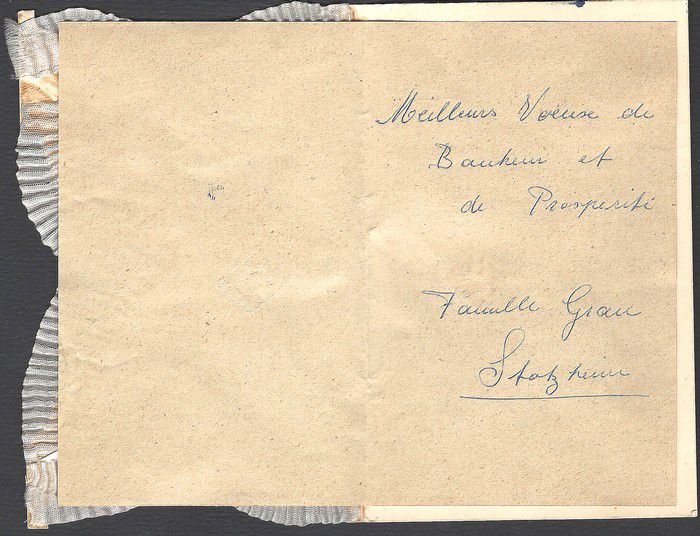 Meilleurs Voeux de
Bonheur et
de Prosperité
Famille Grau
Stotzheim